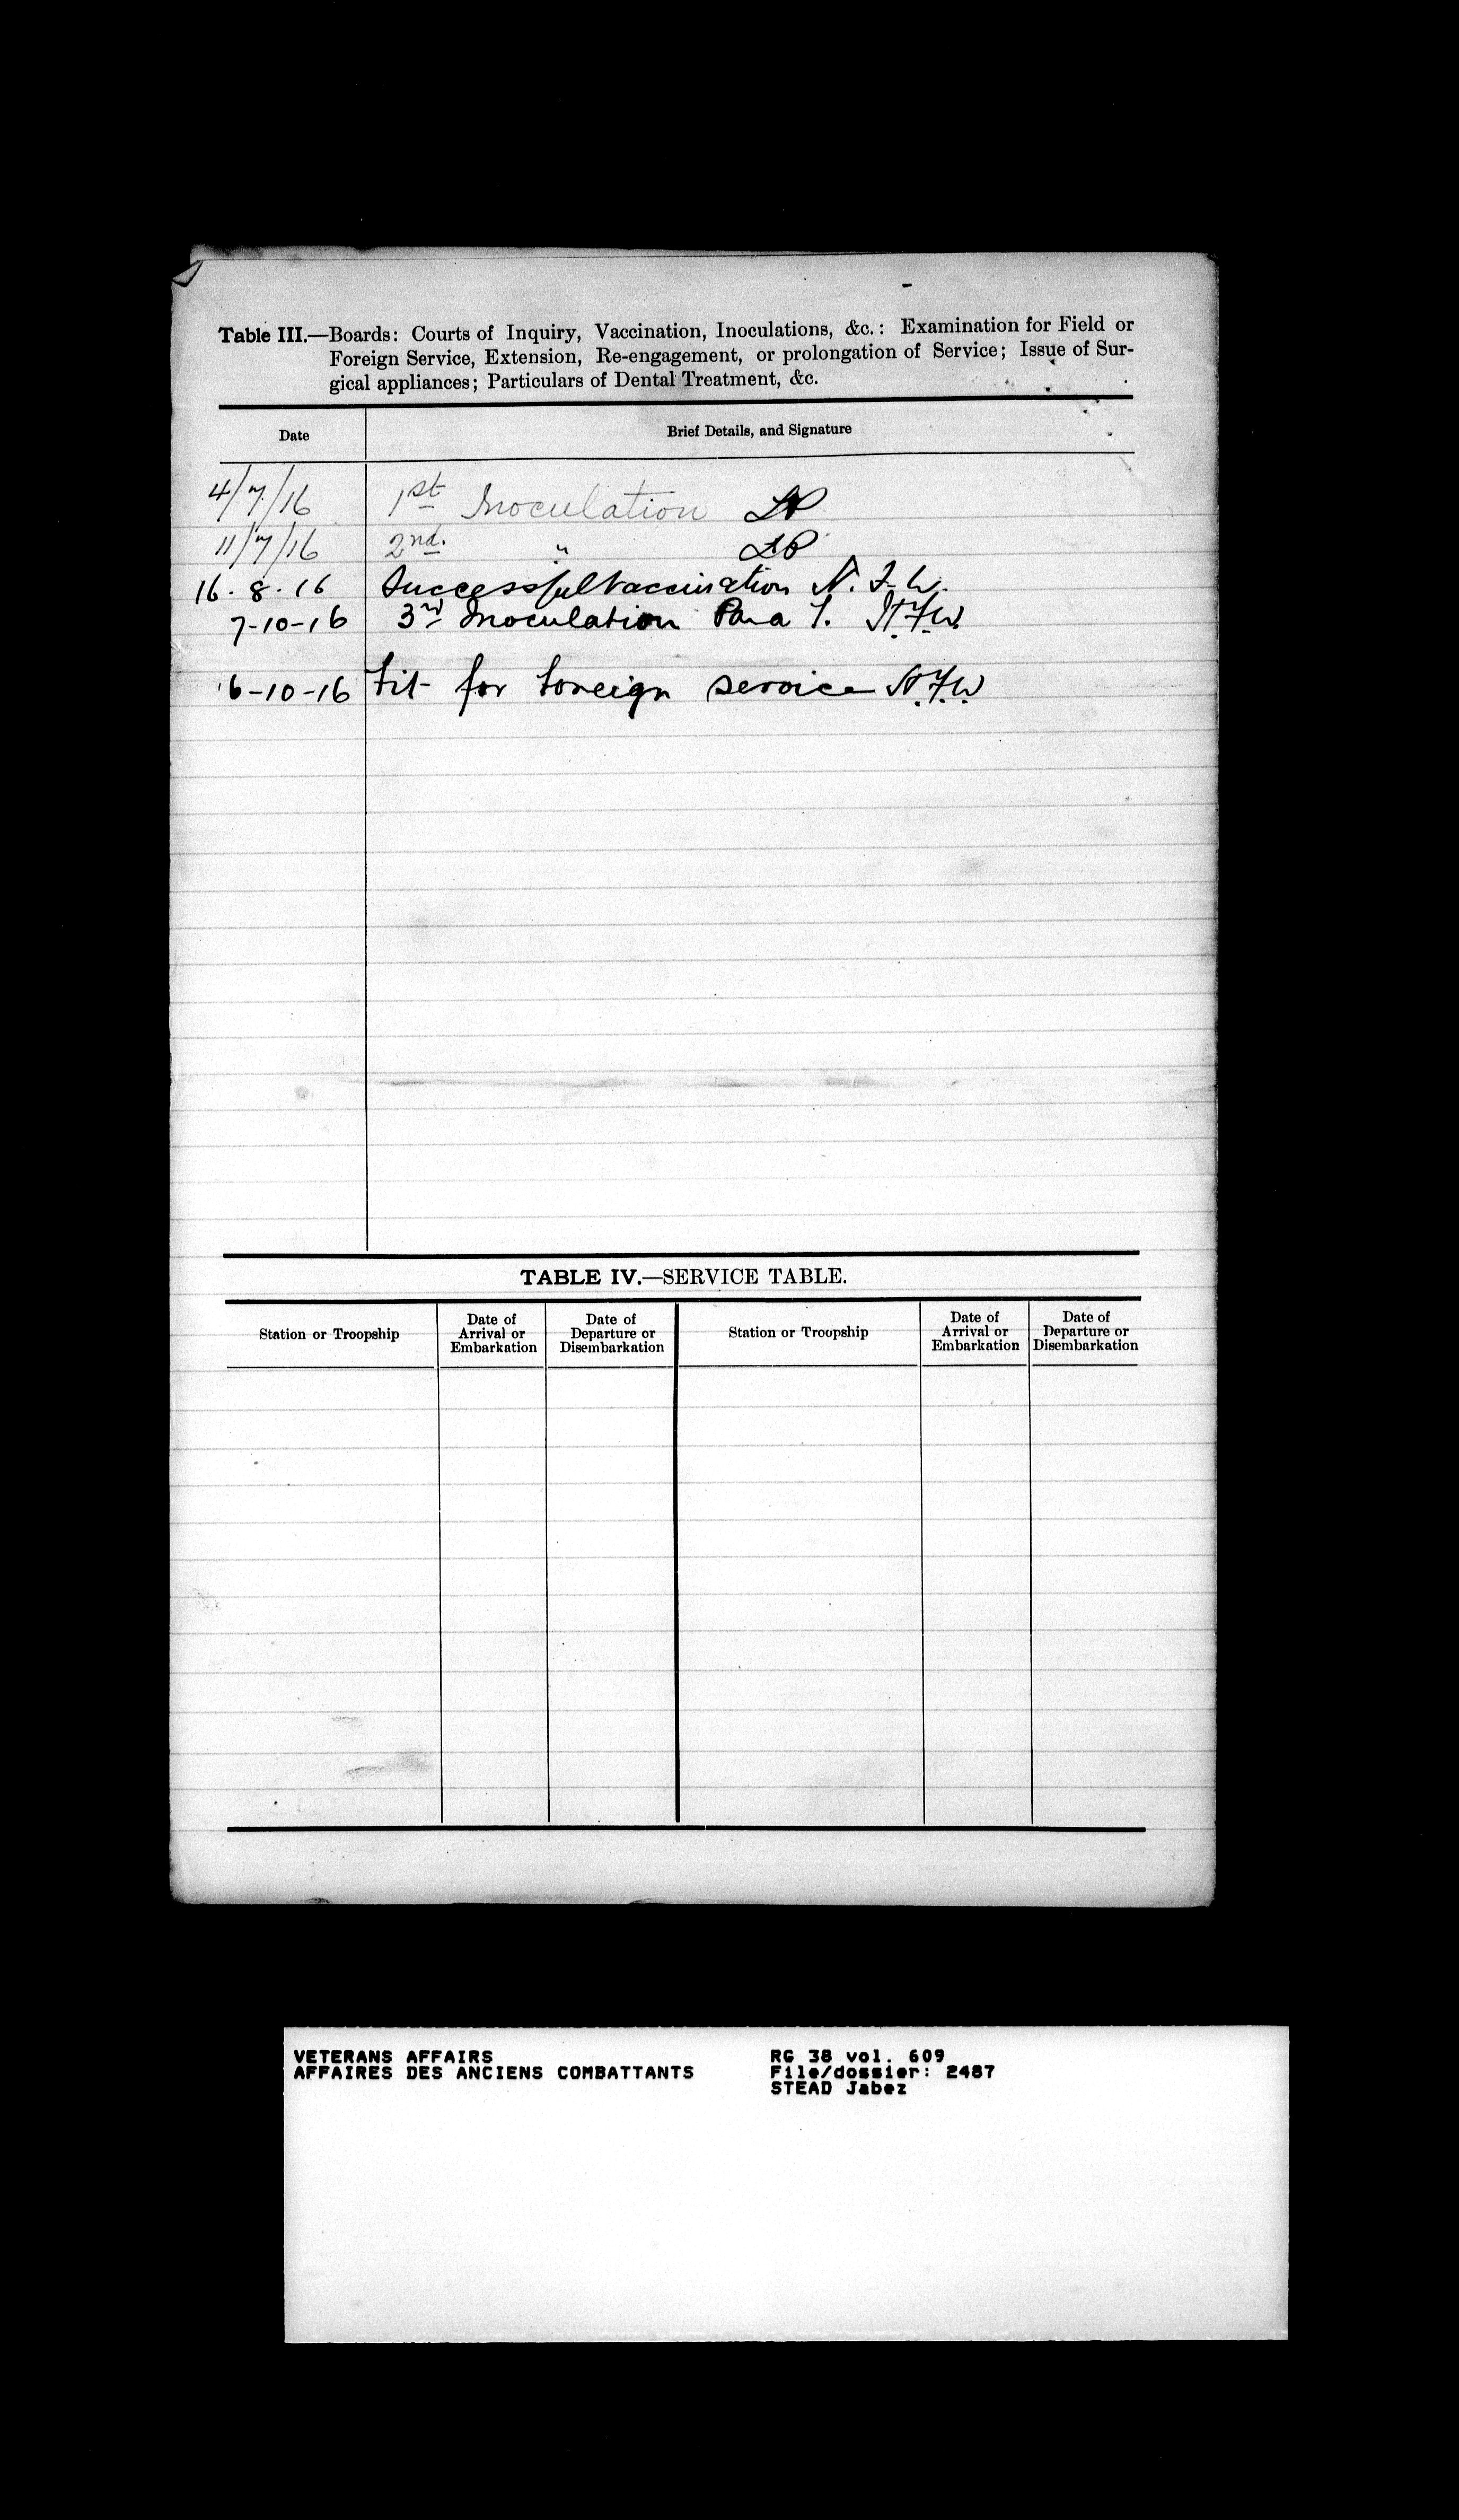 Table III.—Boards: Courts of Inquiry, Vaccination, Inoculations, &c.: Examination for Field or
Foreign Service, Extension, Re-engagement, or prolongation of Service; Issue of Sur-
gical appliances; Particulars of Dental Treatment, &c.
Date Brief Details, and Signature
4/7/16 1st Inoculation
11/7/16 2nd. "
16.8.16 Successful Vaccination N.F.W.
7-10-16 3rd Inoculation Para T. N.F.W.
6-10-16 Fit for foreign service N.F.W.
TABLE IV.—SERVICE TABLE.
Station or Troopship Date of Arrival or Embarkation Date of Departure or Disembarkation Station or Troopship Date of Arrival or Embarkation Date of Departure or Disembarkation
VETERANS AFFAIRS RG 38 vol. 609
AFFAIRES DES ANCIENS COMBATTANTS File/dossier: 2487
STEAD Jabez